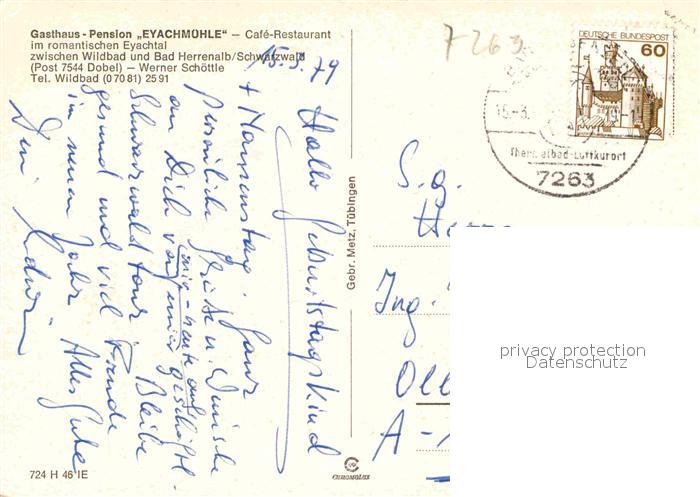 Gasthaus - Pension „EYACHMÜHLE“ – Café-Restaurant
im romantischen Eyachtal
zwischen Wildbad und Bad Herrenalb/Schwarzwald
(Post 7544 Dobel) – Werner Schöttle
Tel. Wildbad (070 81) 25 91
15.3.79
Hallo Geburtstagskind
+ Namenstag! Ganz
persönliche Grüße u. Wünsche
an Dich von mir
mir - heute auf geschäftl.
Schwarzwaldtour. Bleibe
gesund und viel Freude
im neuen Jahr. Alles Gute
Dein
724 H 46 IE
Gebr. Metz, Tübingen
CHROMOLUX
7263
DEUTSCHE BUNDESPOST
60
15.-3.
7263
S.g.
Ing.
A-
privacy protection
Datenschutz